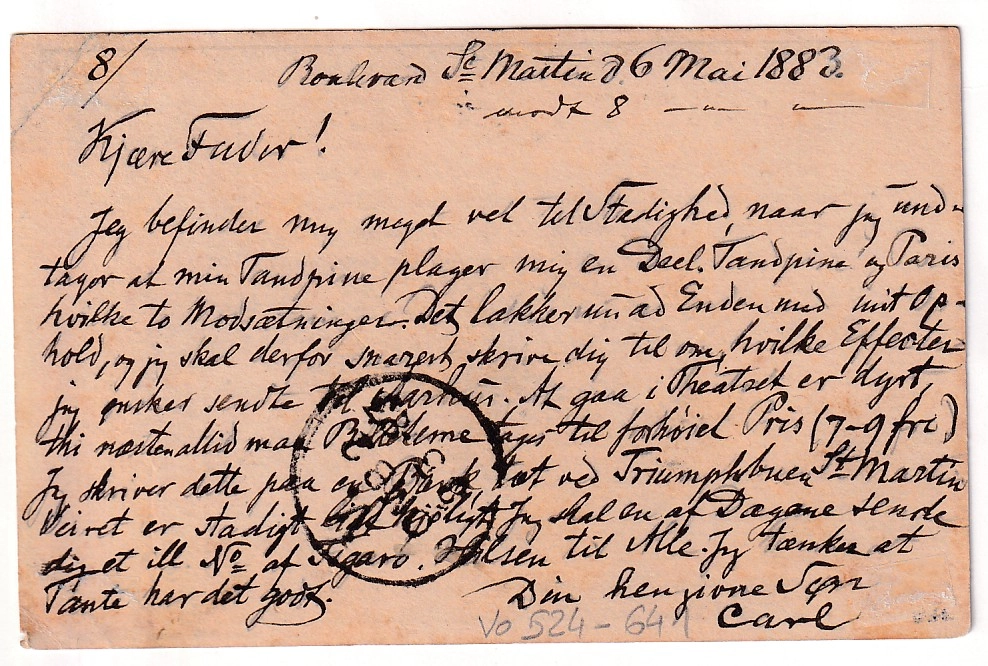 8/
Boulevard St Martin d. 6 Mai 1883.
modt 8 — " — " —
Kjære Fader!
Jeg befinder mig meget vel til Stadighed, naar jeg und-
tager at min Tandpine plager mig en Deel. Tandpine og Paris
hvilke to Modsætninger. Det lakker nu ad Enden med mit Op-
hold, og jeg skal derfor snarest skrive dig til om, hvilke Effecter
jeg ønsker sendte til Aarhuus. At gaa i Theatret er dyrt,
thi næsten altid maa Billeterne tages til forhøiet Priis (7-9 frc)
Jeg skriver dette paa en Bænk tæt ved Triumphbuen St Martin
Veiret er stadigt lidt kjøligt. Jeg skal en af Dagene sende
dig et ill No af Figaro. Hilsen til Alle. Jeg tænker at
Tante har det godt.
Din hengivne Søn
Carl
Vo 524-641